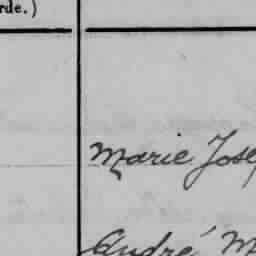 rde.)
Marie Jose
André M